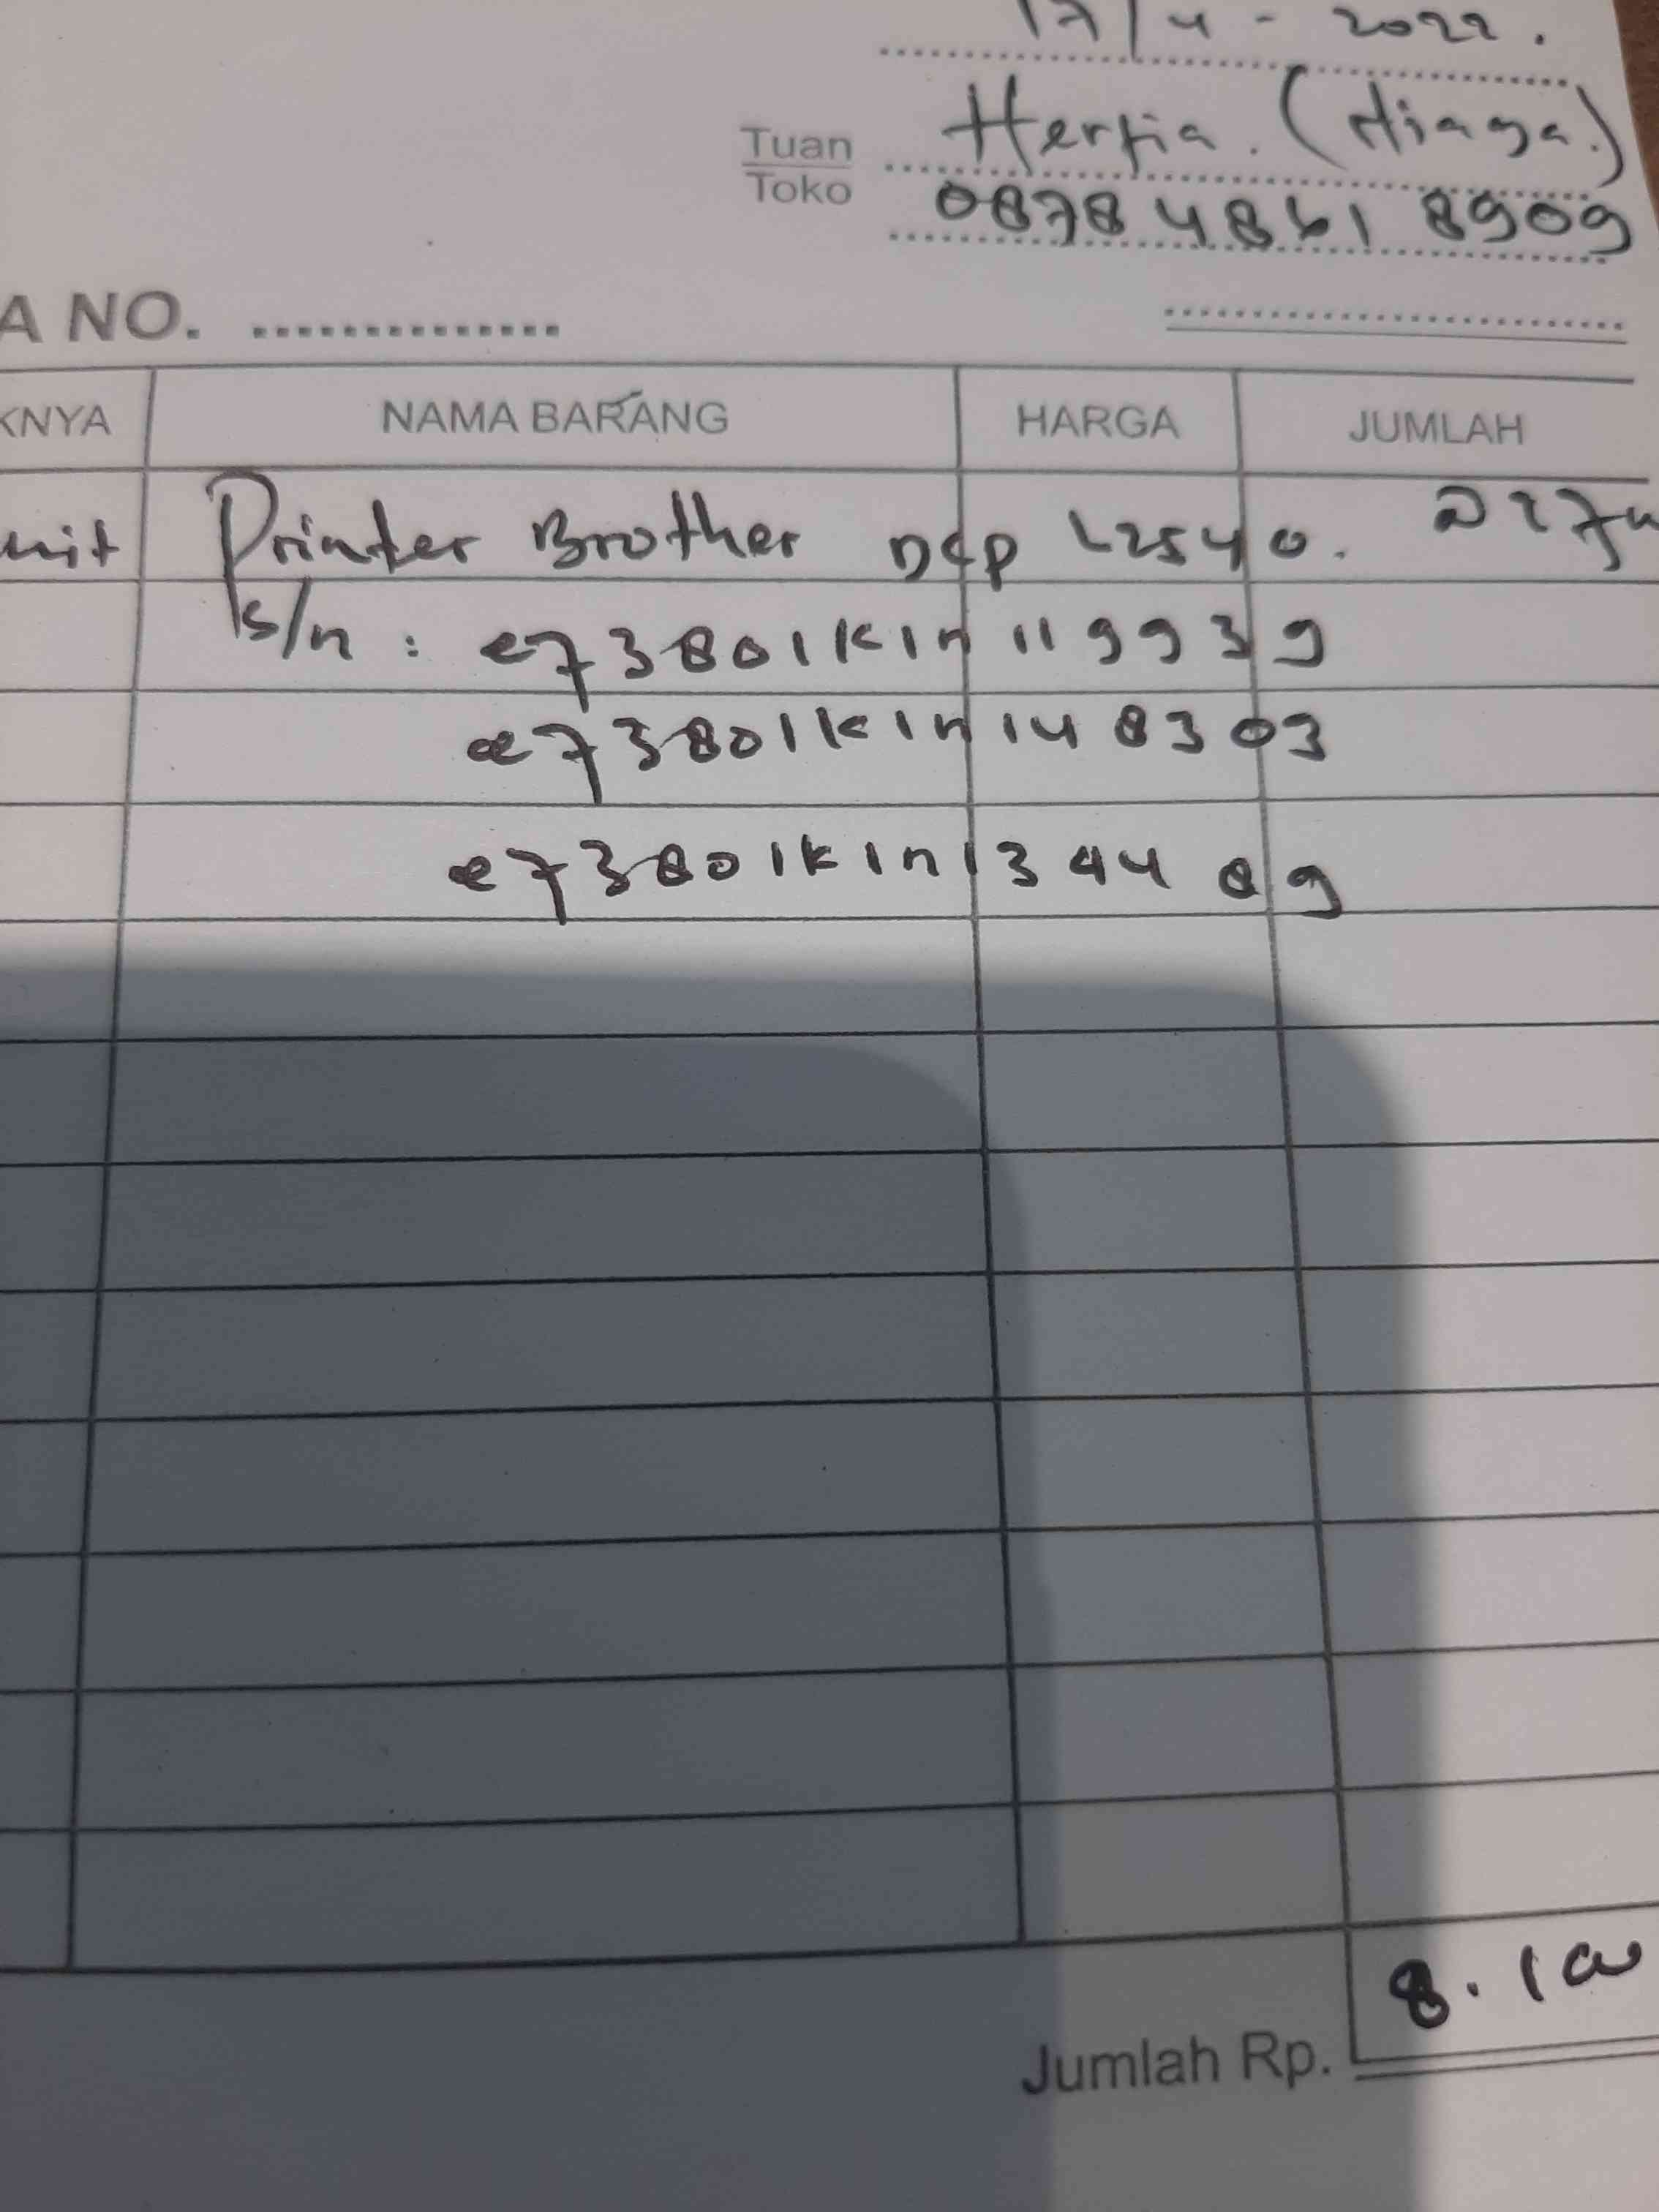 17/4 - 2022.
Tuan Herfia. (Niaga.)
Toko 0878 4861 8909
A NO. ..............
KNYA NAMA BARANG HARGA JUMLAH
unit Printer Brother Dcp L2540. @ 27
s/n : e73801K1n119939
e73801K1n148303
e73801K1n134489
8.100
Jumlah Rp.